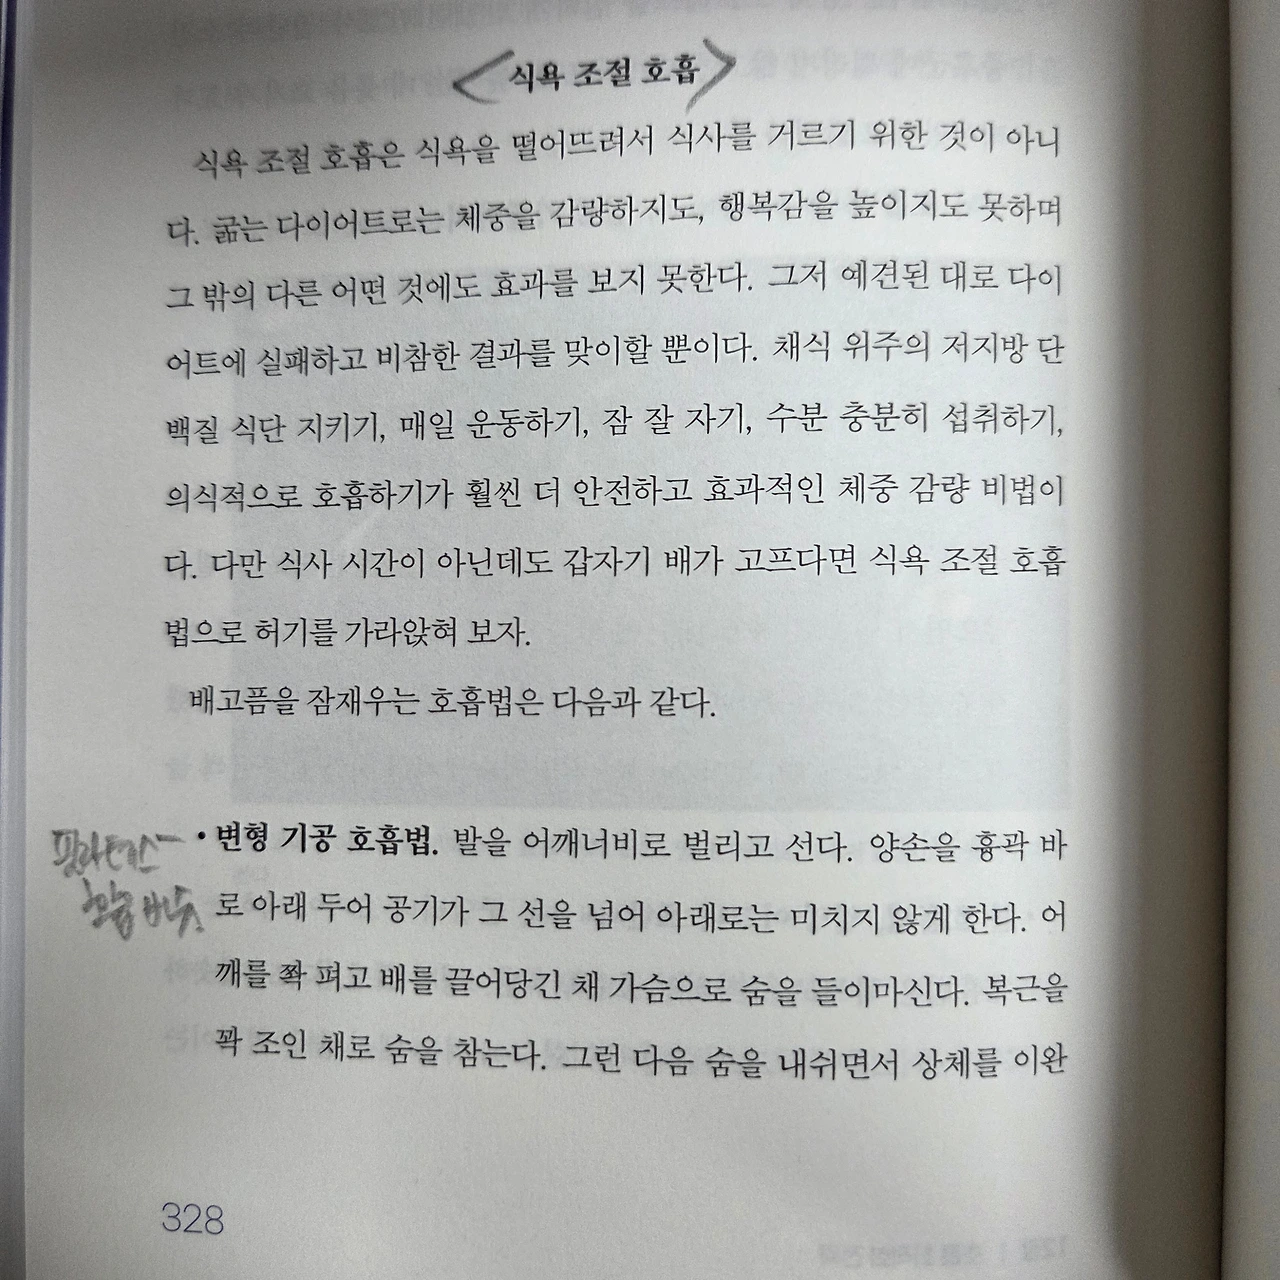 <식욕 조절 호흡>
식욕 조절 호흡은 식욕을 떨어뜨려서 식사를 거르기 위한 것이 아니
다. 굶는 다이어트로는 체중을 감량하지도, 행복감을 높이지도 못하며
그 밖의 다른 어떤 것에도 효과를 보지 못한다. 그저 예견된 대로 다이
어트에 실패하고 비참한 결과를 맞이할 뿐이다. 채식 위주의 저지방 단
백질 식단 지키기, 매일 운동하기, 잠 잘 자기, 수분 충분히 섭취하기,
의식적으로 호흡하기가 훨씬 더 안전하고 효과적인 체중 감량 비법이
다. 다만 식사 시간이 아닌데도 갑자기 배가 고프다면 식욕 조절 호흡
법으로 허기를 가라앉혀 보자.
배고픔을 잠재우는 호흡법은 다음과 같다.
필라테스
호흡 비슷.
• 변형 기공 호흡법. 발을 어깨너비로 벌리고 선다. 양손을 흉곽 바
로 아래 두어 공기가 그 선을 넘어 아래로는 미치지 않게 한다. 어
깨를 쫙 펴고 배를 끌어당긴 채 가슴으로 숨을 들이마신다. 복근을
꽉 조인 채로 숨을 참는다. 그런 다음 숨을 내쉬면서 상체를 이완
328